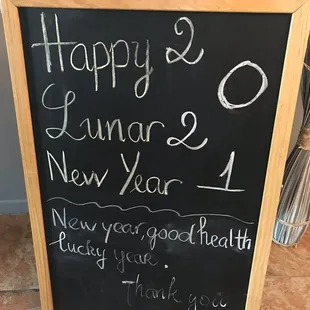 Happy 2
0
Lunar 2
New Year 1
New year, good health
lucky year.
Thank you